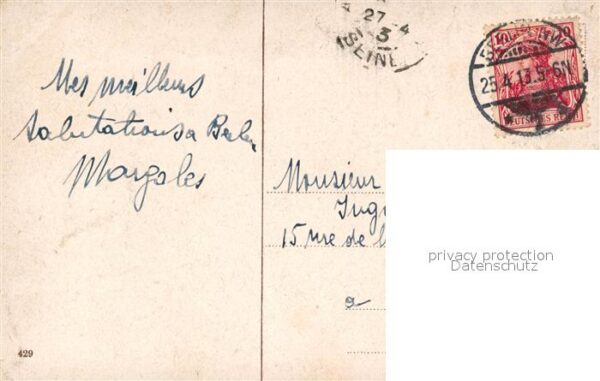 Mes meilleurs
Salutations a
Margales
429
27 4
3
25.4.13.5-6N
DEUTSCHES REICH
Monsieur
15 rue de l
a
privacy protection
Datenschutz